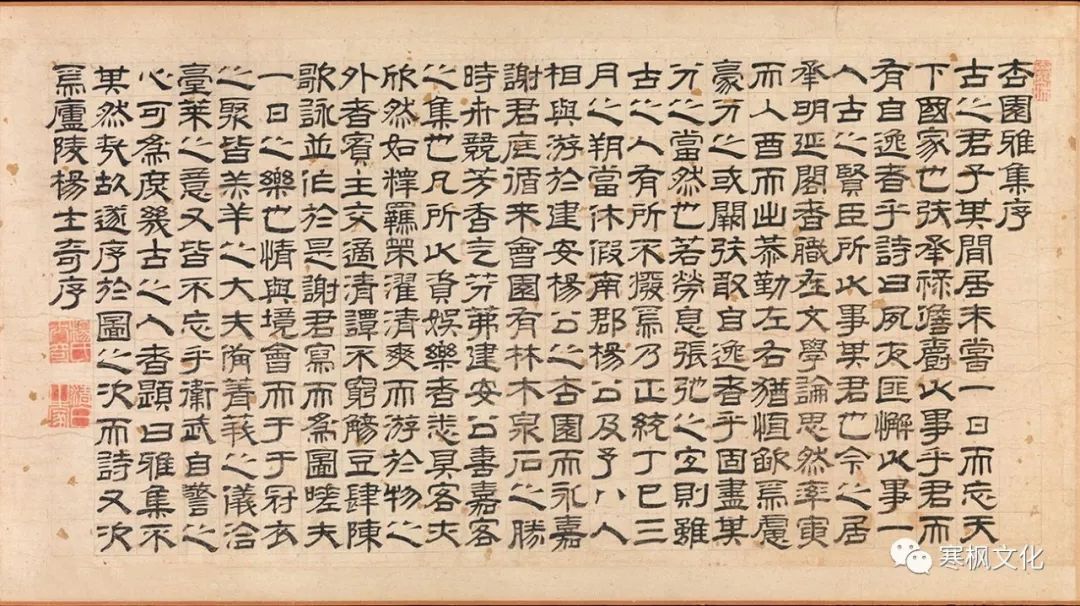 杏園雅集序
古之君子其間居未嘗一日而忘天
下國家也矧承祿儋爵以事乎君而
有自逸者乎詩曰夙夜匪懈以事一
人古之賢臣所以事其君也今之居
承明延閣者職在文學論思然率寅
而入酉而出恭勤左右猶恒歉焉慮
豪分之或闕矧敢自逸者乎固盡其
分之當然也若勞息張弛之宜則雖
古之人有所不廢焉乃正統丁巳三
月之朔當休假南郡楊公及予八人
相與游於建安楊公之杏園而永嘉
謝君庭循來會園有林木泉石之勝
時卉競芳香氣芬茀建安公喜嘉客
之集也凡所以資娛樂者悉具客亦
欣然如釋羈策濯清爽而游於物之
外者賓主交適清譚不窮觴豆肆陳
歌詠並作於是謝君寫而為圖嗟夫
一日之樂也情與境會而于于冠衣
之聚皆羔羊之大夫備菁莪之儀洽
臺萊之意又皆不忘乎衛武自警之
心可為庶幾古之人者題曰雅集不
其然哉故遂序於圖之次而詩又次
焉廬陵楊士奇序
寒枫文化